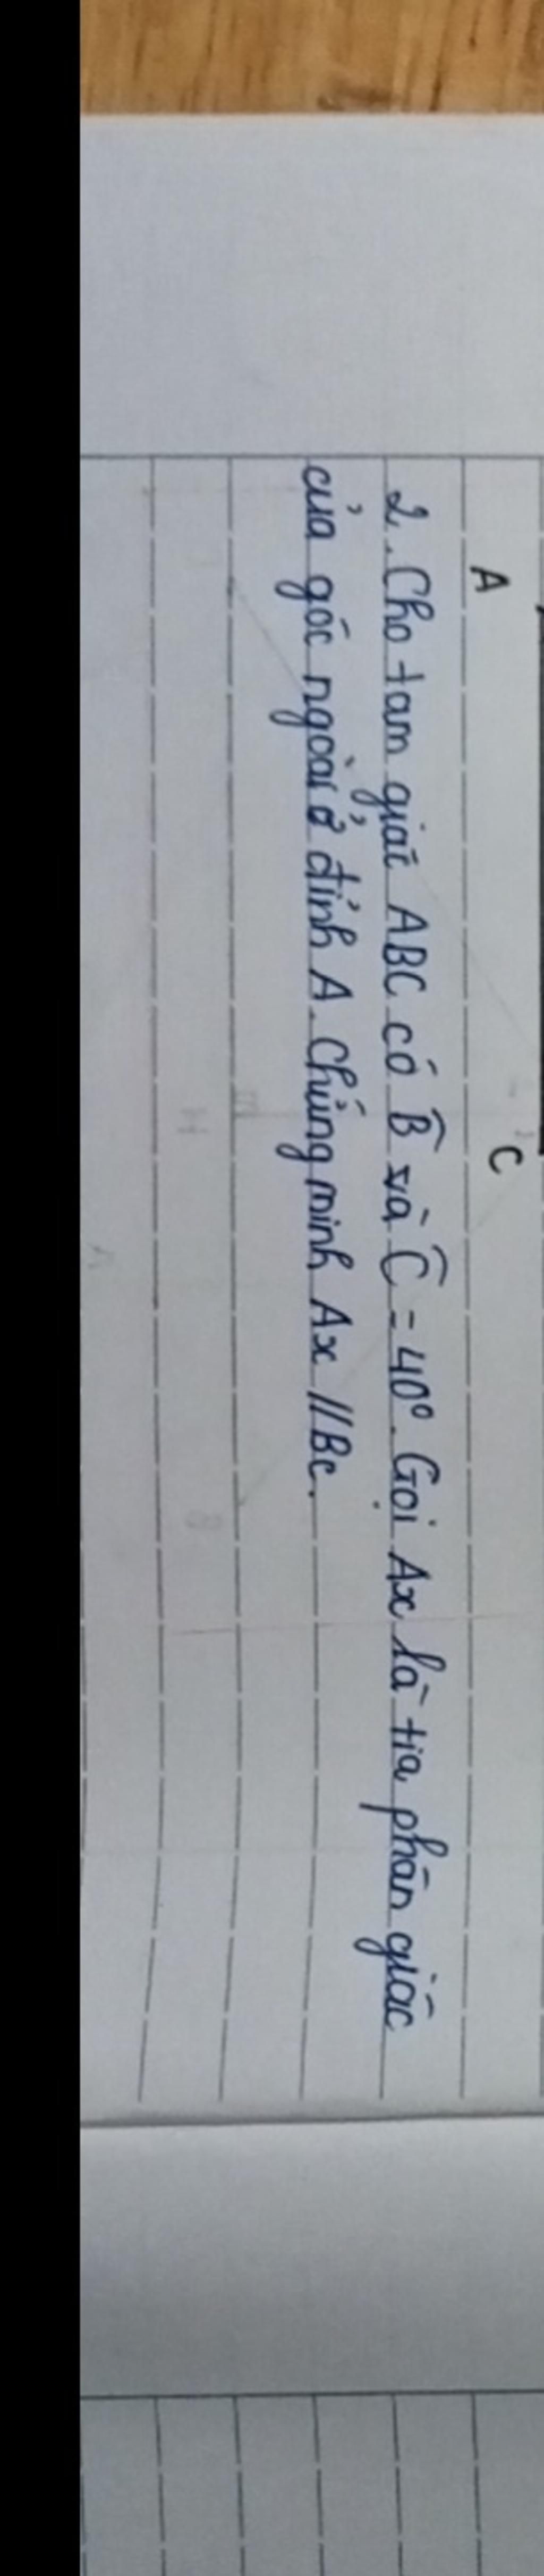 A C
2. Cho tam giác ABC có B̂ và Ĉ = 40°. Gọi Ax là tia phân giác
của góc ngoài ở đỉnh A. Chứng minh Ax // Bc.